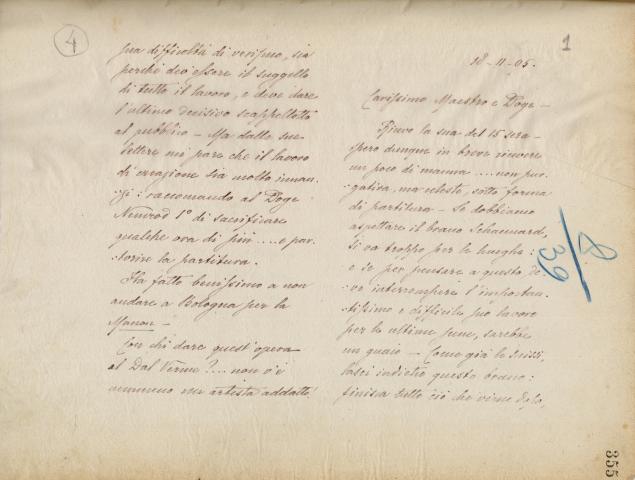 1
18-11-95.
Carissimo Maestro e Doge -
Ricevo la sua del 15 sera -
spero dunque in breve ricevere
un poco di manna .... non pur-
-gativa, ma celeste, sotto forma
di partitura - Se dobbiamo
aspettare il brano Schaunard,
si va troppo per le lunghe:
e se per pensare a questo de-
-ve interrompere l'importan-
-tissimo e difficile suo lavoro
per le ultime scene, sarebbe
un guaio - Come già le dissi,
lasci indietro questo brano:
finisca tutto ciò che viene dopo,
8/39
355
4
sua difficoltà di verismo, sia
perchè dev'essere il suggello
di tutto il lavoro, e deve dare
l'ultimo decisivo scappellotto
al pubblico - Ma dalle sue
lettere mi pare che il lavoro
di creazione sia molto innan-
-zi: raccomando al Doge
Nemrod 1º di sacrificare
qualche ora di più .... e par-
-torire la partitura.
Ha fatto benissimo a non
andare a Bologna per la
Manon -
Con chi dare quest'opera
al Dal Verme?... non v'è
nemmeno un artista addatto!